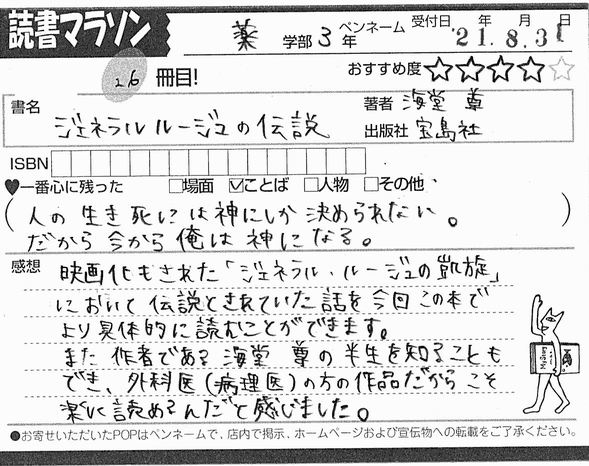 読書マラソン
薬 学部 3 年 ペンネーム 受付日 年 月 日
'21.8.31
26 冊目! おすすめ度 ☆☆☆☆☆
書名 ジェネラルルージュの伝説
著者 海堂 尊
出版社 宝島社
ISBN
♥一番心に残った □場面 ☑ことば □人物 □その他
(人の生き死には神にしか決められない。
だから今から俺は神になる。)
感想 映画化もされた「ジェネラル・ルージュの凱旋」
において伝説とされていた話を今回この本で
より具体的に読むことができます。
また作者である海堂尊の半生を知ることも
でき、外科医(病理医)の方の作品だからこそ
楽に読めるんだと感じました。
●お寄せいただいたPOPはペンネームで、店内で掲示、ホームページおよび宣伝物への転載をご了承ください。